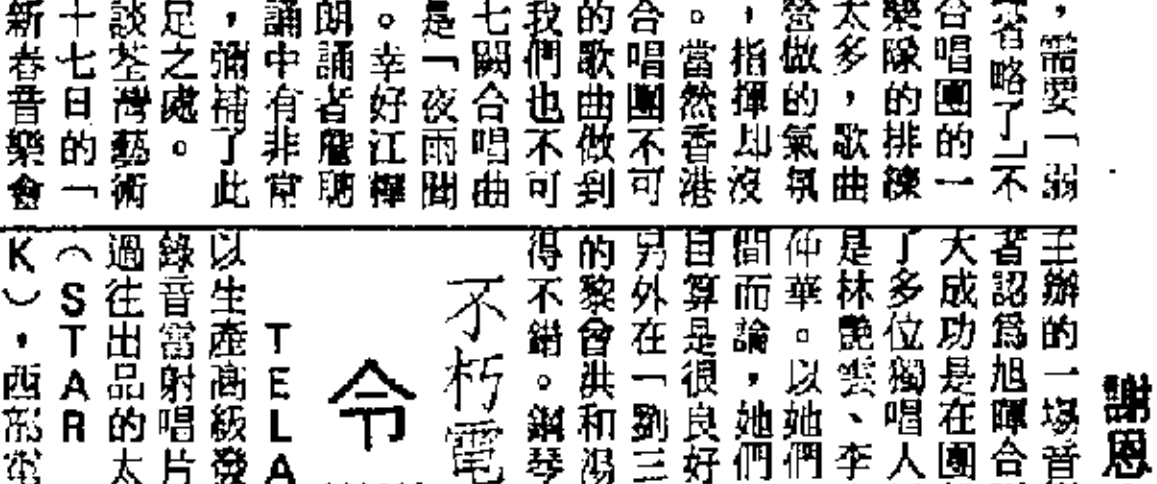 ，需要「弱
略了」不
合唱團的一
樂隊的排練
太多，歌曲
營做的氣氛
，指揮却沒
。當然香港
合唱團不可
的歌曲做到
我們也不可
七闋合唱曲
是「夜雨聞
。幸好江樺
朗誦者龐聰
誦中有非常
，彌補了此
足之處。
談荃灣藝術
十七日的「
新春音樂會
謝恩
主辦的一場音
者認爲旭暉合
大成功是在團
了多位獨唱人
是林艷雲、李
仲華。以她們
間而論，她們
目算是很良好
另外在「劉三
的黎曾洪和湯
得不錯。鋼琴
不朽電
令
TELA
以生產高級發
錄音雷射唱片
過往出品的太
（STAR
K），西部